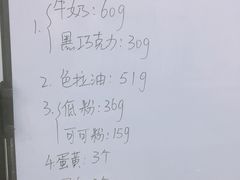 1. 牛奶:60g
黑巧克力:30g
2. 色拉油:51g
3. 低粉:36g
可可粉:15g
4. 蛋黄:3个